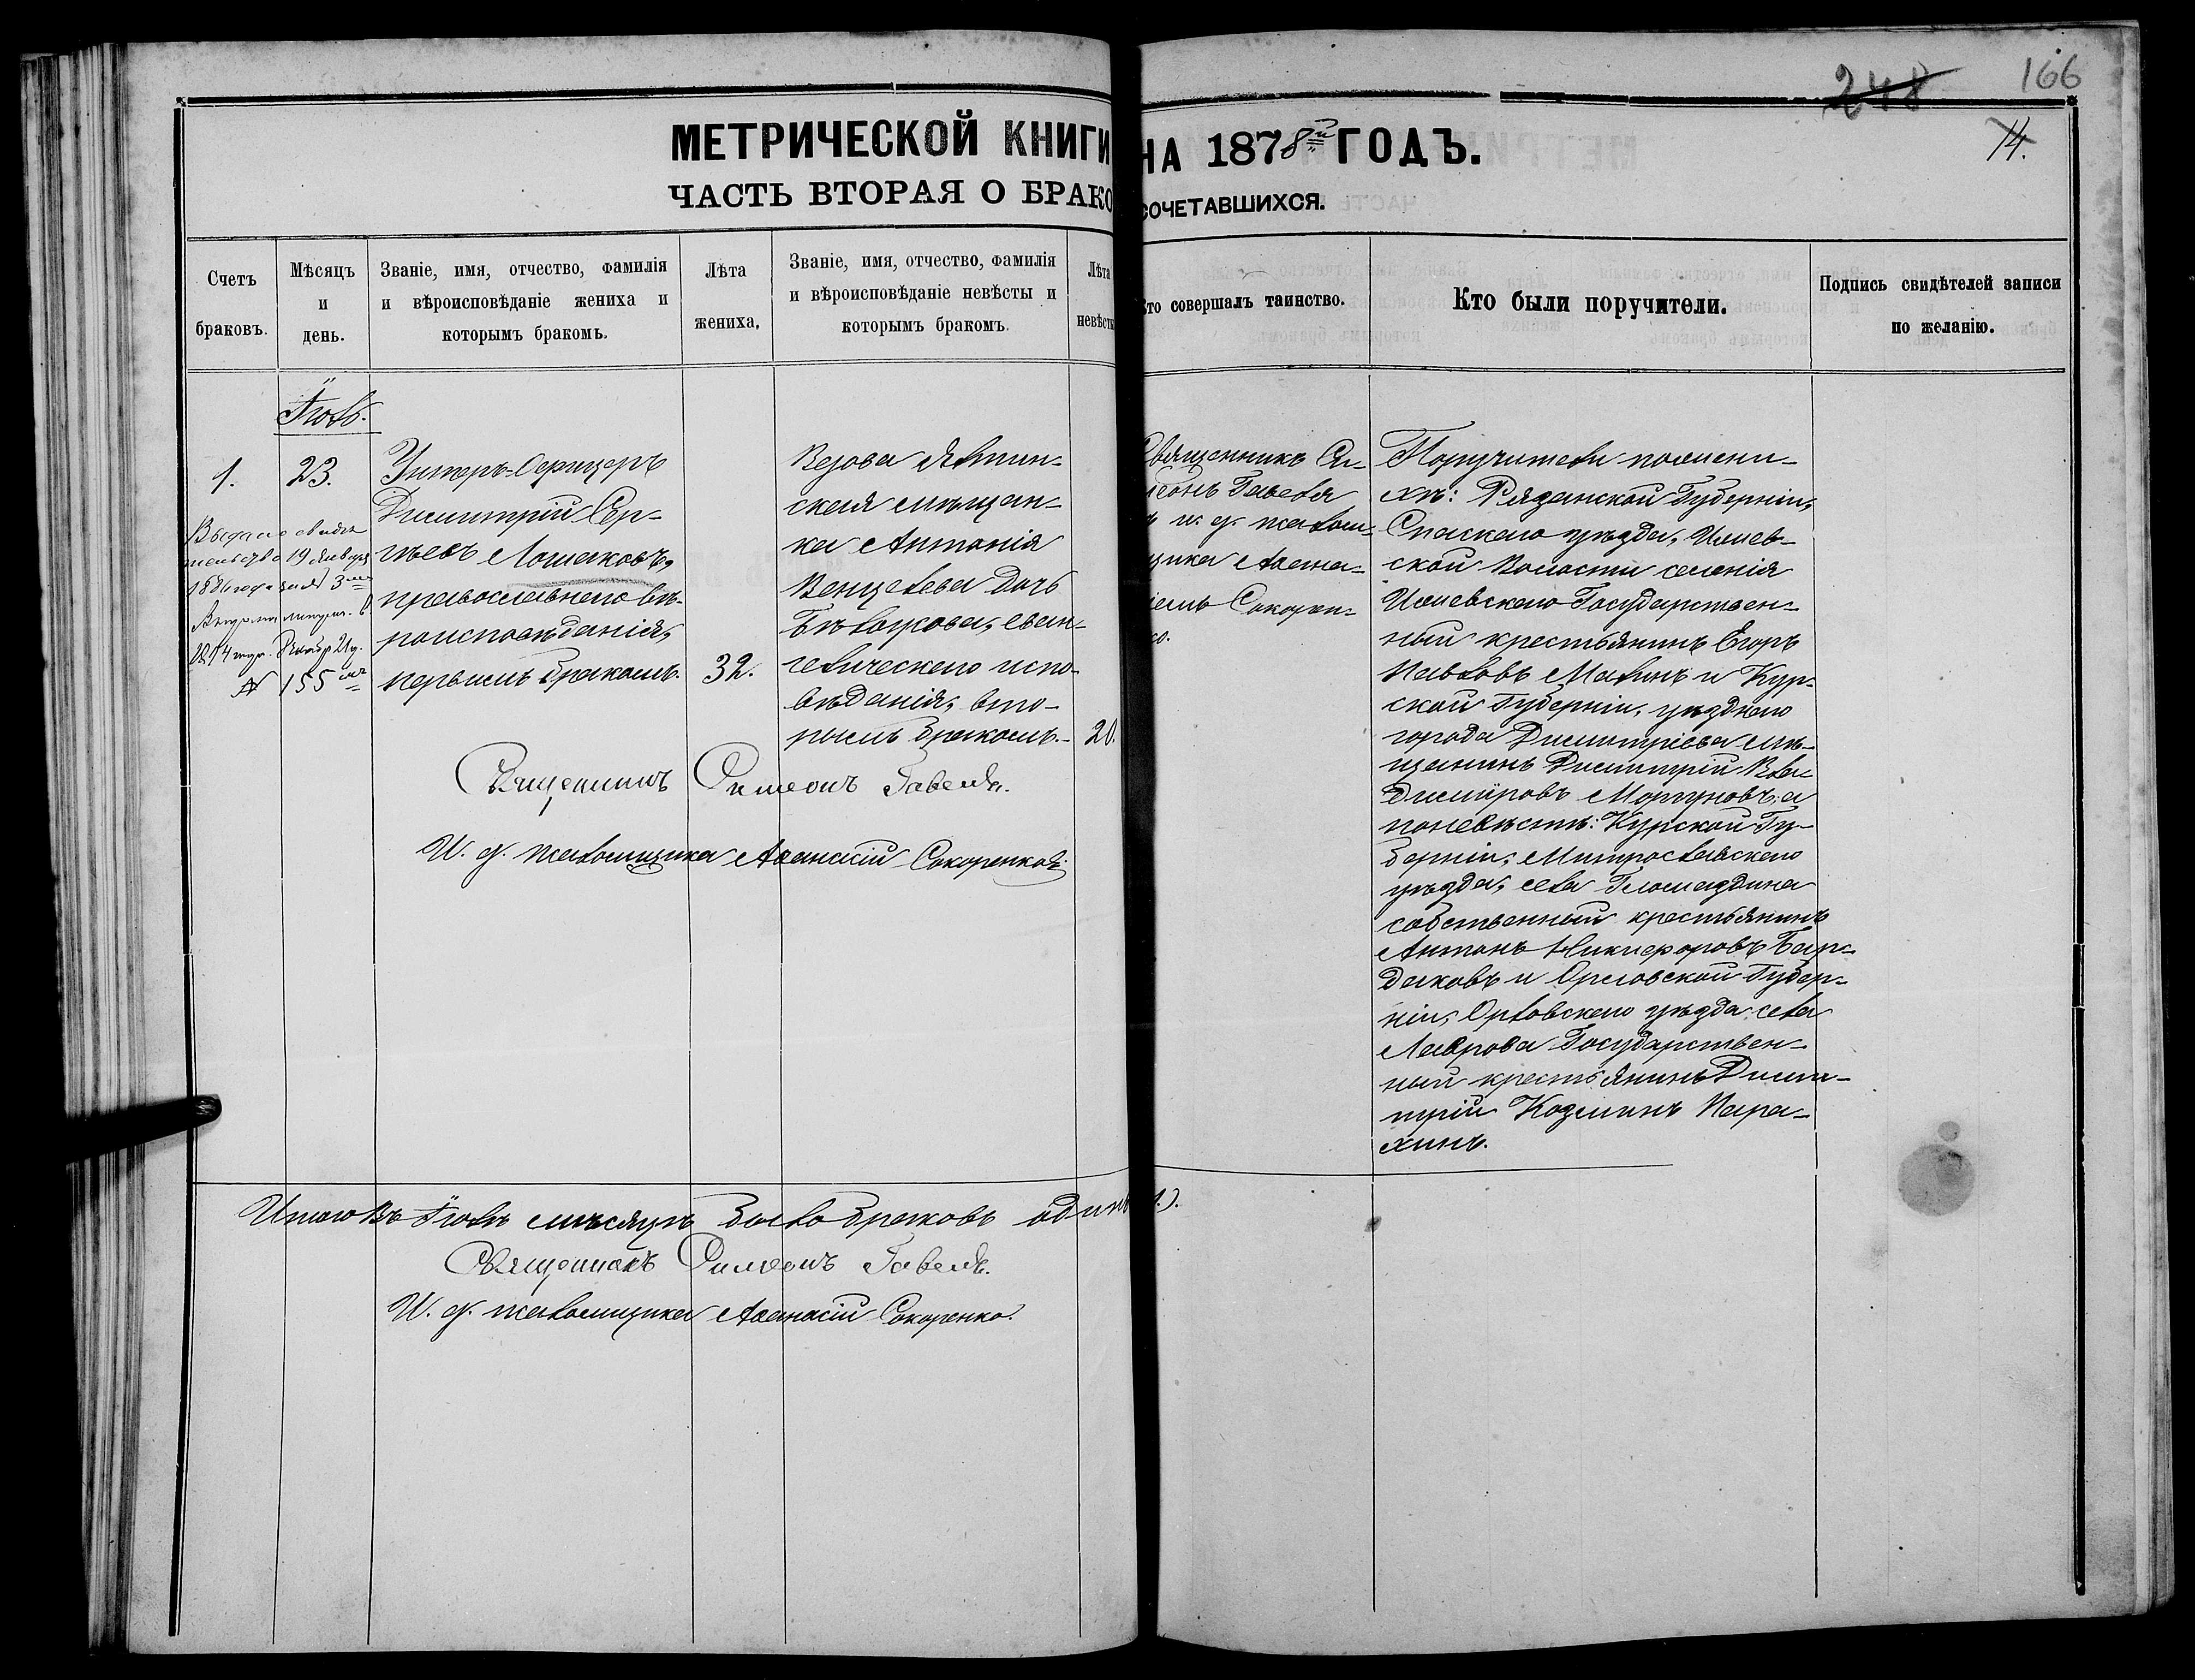 166
248
14.
МЕТРИЧЕСКОЙ КНИГИ НА 1878й ГОДЪ.
ЧАСТЬ ВТОРАЯ О БРАКОСОЧЕТАВШИХСЯ.
Счетъ браковъ.
Мѣсяцъ и день.
Званіе, имя, отчество, фамилія и вѣроисповѣданіе жениха и которымъ бракомъ.
Лѣта жениха.
Званіе, имя, отчество, фамилія и вѣроисповѣданіе невѣсты и которымъ бракомъ.
Лѣта невѣсты
Кто совершалъ таинство.
Кто были поручители.
Подпись свидѣтелей записи по желанію.
Іюль.
1.
23.
Выдано свидѣ-
тельство 19 Января
№ 155
Унтеръ-Офицеръ
Димитрій Сер-
гѣевъ Лошаковъ,
православнаго вѣ-
роисповѣданія,
первымъ бракомъ.
32.
Вдова
ская мѣщан-
ка Антонія
Венцелева дочь
еван-
гелическаго испо-
вѣданія, вто-
рымъ бракомъ.
20.
Священникъ Си-
меонъ Гавеля
и. д. псалом-
щика Аѳана-
Сокорен-
ко.
Поручители по жени-
хѣ: Рязанской Губерніи,
Спаскаго уѣзда, Ижев-
ской Волости селенія
Ижевскаго Государствен-
ный крестьянинъ Егоръ
Павловъ Малинъ и Кур-
ской Губерніи, уѣзднаго
города Димитріева мѣ-
щанинъ Димитрій Вла-
диміровъ Моргуновъ; а
по невѣстѣ: Курской Гу-
берніи,
уѣзда, села
собственный крестьянинъ
Антонъ Никифоровъ Бар-
даковъ и Орловской Губер-
ніи, Орловскаго уѣзда села
Лаврова Государствен-
ный крестьянинъ Дими-
трій Козминъ Пара-
хинъ.
Священникъ Симеонъ Гавеля.
И. д. псаломщика Аѳанасій Сокоренков.
Итого въ Іюлѣ мѣсяцѣ было браковъ одинъ (1.).
Священникъ Симеонъ Гавеля.
И. д. псаломщика Аѳанасій Сокоренко.